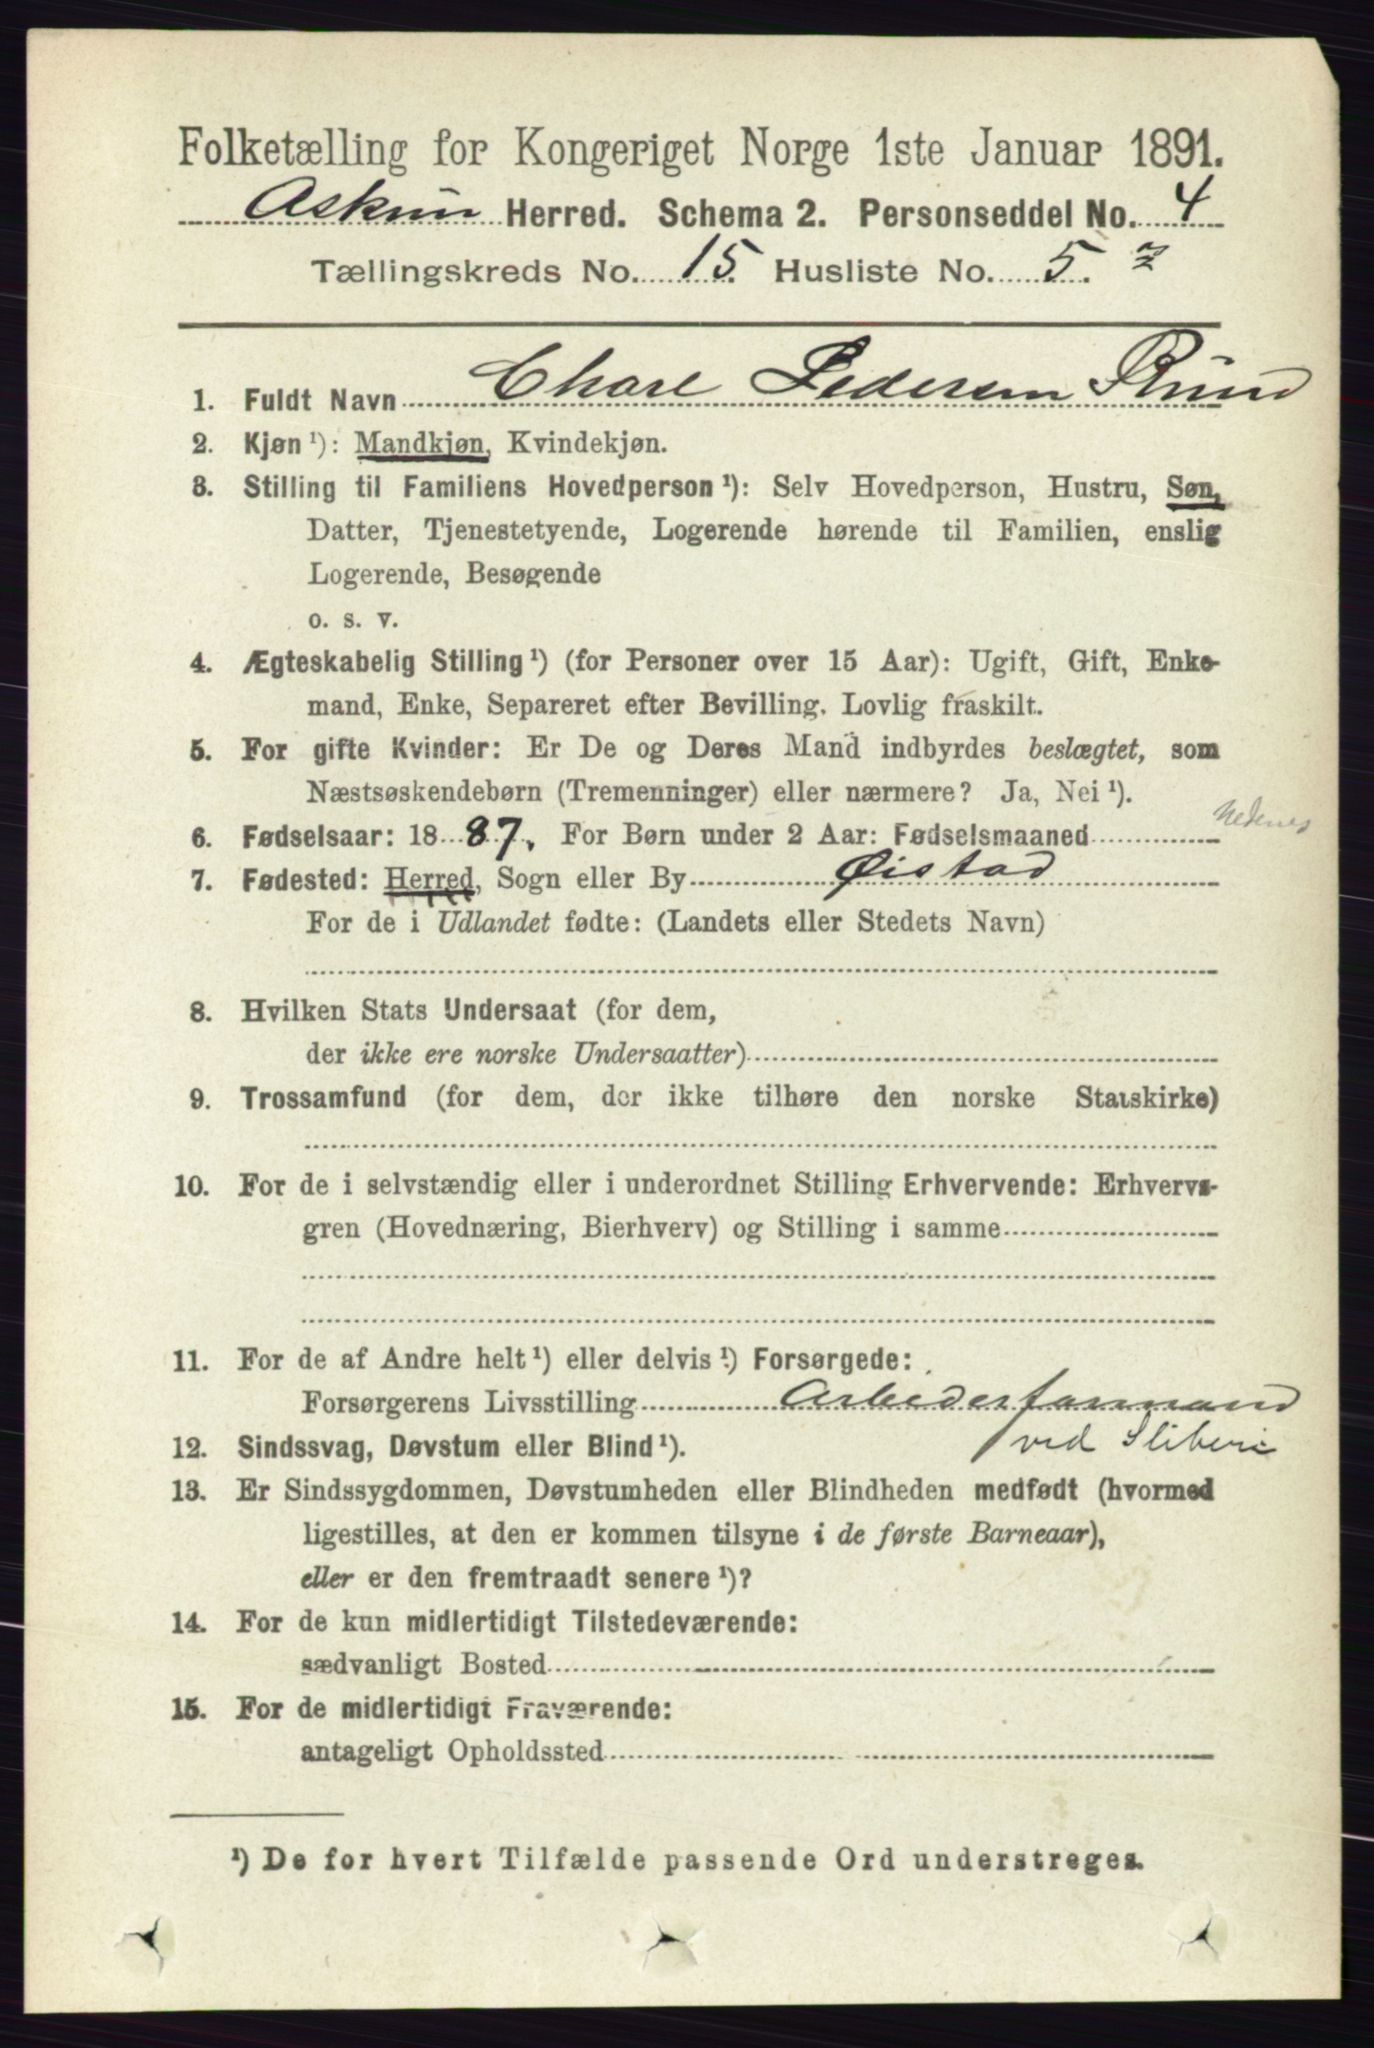 Folketælling for Kongeriget Norge 1ste Januar 1891.
Askim Herred. Schema 2. Personseddel No. 4
Tællingskreds No. 15. Husliste No. 5.
1. Fuldt Navn Charl Pedersen Rund
2. Kjøn ¹): Mandkjøn, Kvindekjøn.
3. Stilling til Familiens Hovedperson ¹): Selv Hovedperson, Hustru, Søn,
Datter, Tjenestetyende, Logerende hørende til Familien, enslig
Logerende, Besøgende
o. s. v.
4. Ægteskabelig Stilling ¹) (for Personer over 15 Aar): Ugift, Gift, Enke-
mand, Enke, Separeret efter Bevilling. Lovlig fraskilt.
5. For gifte Kvinder: Er De og Deres Mand indbyrdes beslægtet, som
Næstsøskendebørn (Tremenninger) eller nærmere? Ja, Nei ¹).
6. Fødselsaar: 1887. For Børn under 2 Aar: Fødselsmaaned
Nedenes
7. Fødested: Herred, Sogn eller By Øistad
For de i Udlandet fødte: (Landets eller Stedets Navn)
8. Hvilken Stats Undersaat (for dem,
der ikke ere norske Undersaatter)
9. Trossamfund (for dem, der ikke tilhøre den norske Statskirke)
10. For de i selvstændig eller i underordnet Stilling Erhvervende: Erhvervs-
gren (Hovednæring, Bierhverv) og Stilling i samme
11. For de af Andre helt ¹) eller delvis ¹) Forsørgede:
Forsørgerens Livsstilling Arbeidsformand
ved Sliberi
12. Sindssvag, Døvstum eller Blind ¹).
13. Er Sindssygdommen, Døvstumheden eller Blindheden medfødt (hvormed
ligestilles, at den er kommen tilsyne i de første Barneaar),
eller er den fremtraadt senere ¹)?
14. For de kun midlertidigt Tilstedeværende:
sædvanligt Bosted
15. For de midlertidigt Fraværende:
antageligt Opholdssted
¹) De for hvert Tilfælde passende Ord understreges.